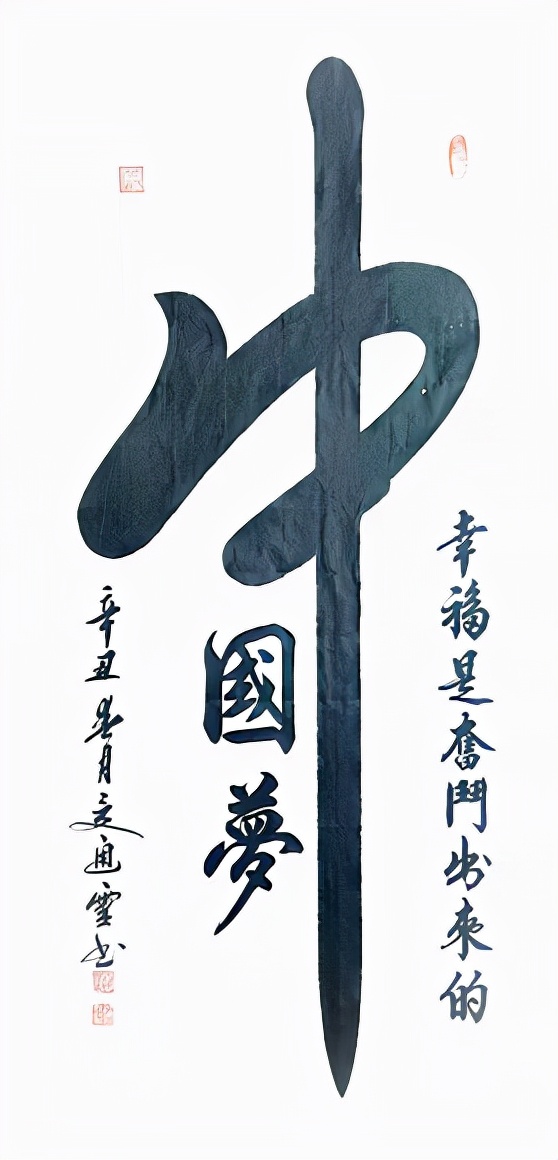 幸福是奮鬥出來的
中國夢
辛丑春月通雲书